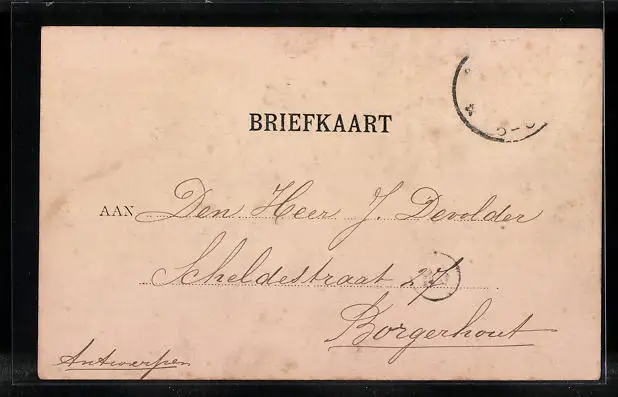 BRIEFKAART
AAN Den Heer J. Devolder
Scheldestraat 27
Borgerhout
Antwerpen